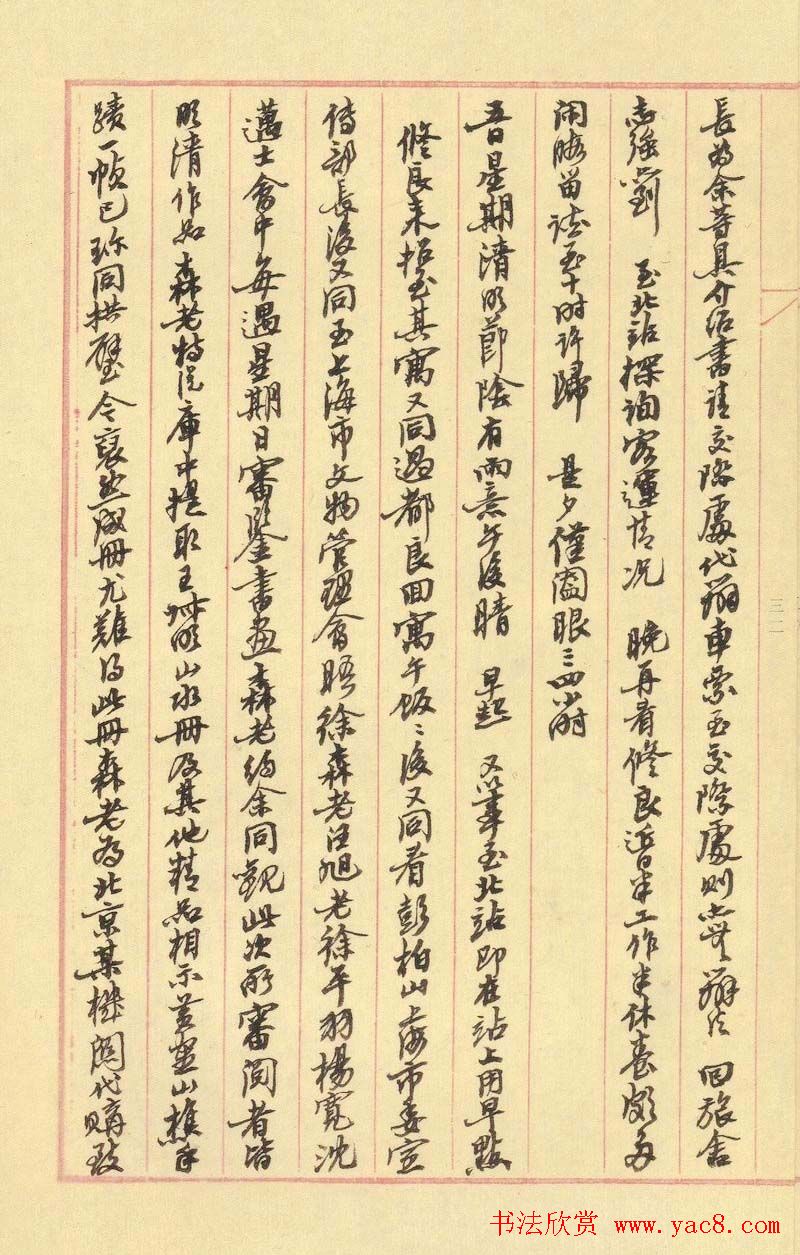 長為余等具介紹書請交際處代辦車票至交際處則無辦法 回旅舍
志強劉 至北站探詢客運情况 晚再看修良近日半工作半休養頗多
閒暇留談至十时许歸 是夕僅闔眼三四小时
五日星期清明節陰有雨意午後晴 早起 又以車至北站即在站上用早點
修良來招至其寓又同過都良回寓午飯〻後又同看彭柏山上海市委宣
传部長後又同至上海市文物管理會晤徐森老汪旭老徐平羽楊寬沈
邁士會中每遇星期日審鑒書画森老約余同觀此次所審閱者皆
明清作品森老特從庫中提取王安道山水冊及其他精品相示黃鶴山樵手
蹟一幀已珍同拱璧今裒然成冊尤難得此冊森老為北京某機關代購致
三二
书法欣赏 www.yac8.com